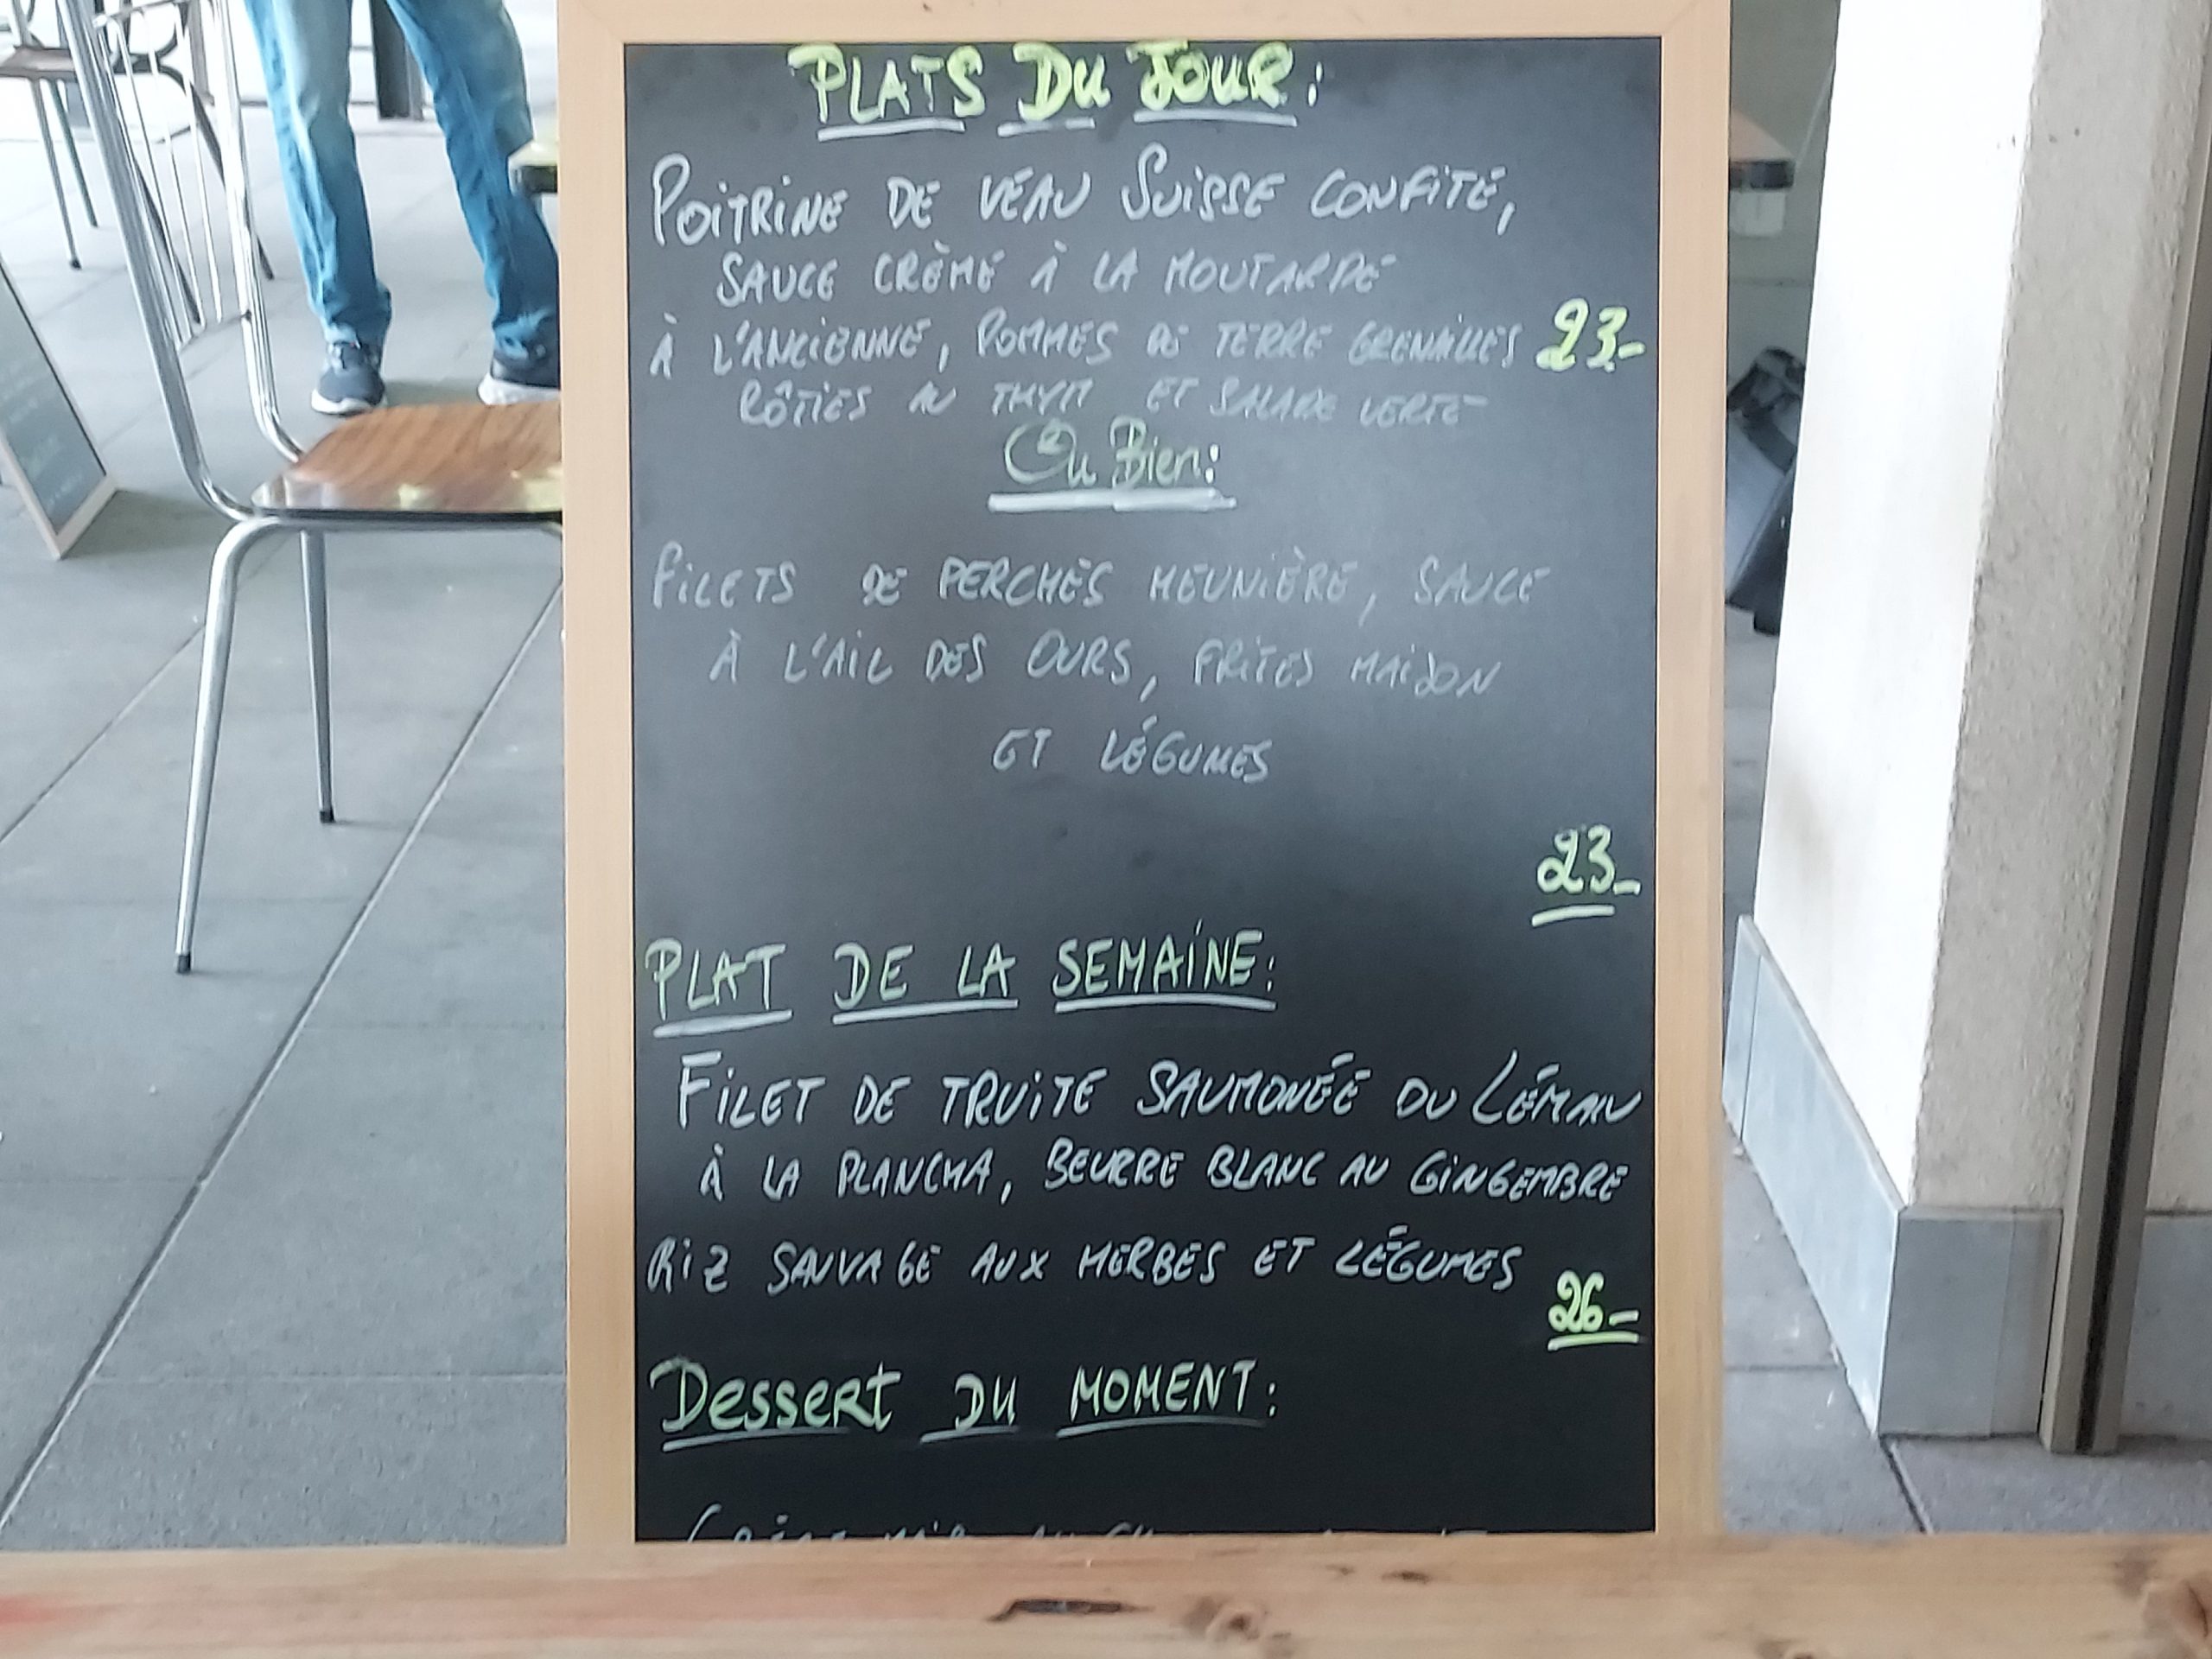 PLATS DU JOUR:
POITRINE DE VEAU SUISSE CONFITE,
SAUCE CRÈME À LA MOUTARDE
À L'ANCIENNE, POMMES DE TERRE GRENAILLES 23.-
RÔTIES AU THYM ET SALADE VERTE
Ou Bien:
FILETS DE PERCHES MEUNIÈRE, SAUCE
À L'AIL DES OURS, FRITES MAISON
ET LÉGUMES
23.-
PLAT DE LA SEMAINE:
FILET DE TRUITE SAUMONÉE DU LÉMAN
À LA PLANCHA, BEURRE BLANC AU GINGEMBRE
RIZ SAUVAGE AUX HERBES ET LÉGUMES
26.-
Dessert DU MOMENT: